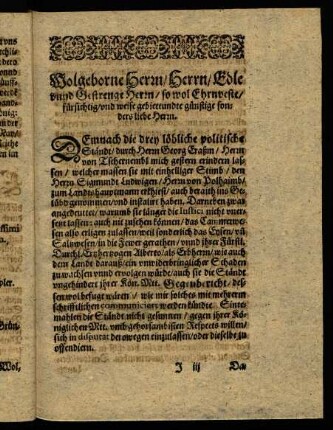 Wolgeborne Herrn / Herrn / Edle
vnnd Gestrenge Herrn / so wol Ehrnveste /
fürsichtig / vnd weise gebieteundte günstige son-
ders liebe Herrn.
DEmnach die drey löbliche politische
Stände / durch Herrn Georg Eraßm / Herrn
von Tschernembl mich gestern erindern las-
sen / welcher massen sie mit einhelliger Stimb / den
Herrn Sigmundt Ludwigen / Herrn von Polhaimb /
zum Landtshauptmann erkhiest / auch darauff ins Ge-
lübd genommen / vnd installirt haben. Darneben zwar
angedeuttet / warumb sie länger die Iustici nicht verz-
sert lassen: auch nit zusehen können / das Cammerwe-
sen also erligen zulassen / weil sonderlich das Eysen / vñ
Saltzwesen / in die Feyer gerathen / vnnd ihrer Fürstl.
Durchl. Ertzhertzogen Alberto / als Erbherrn / wie auch
dem Landt darauß / ein vnwiderbringlicher Schaden
zu wachsen vnnd ervolgen würde / auch sie die Ständt
vngehindert ihrer Kön. Mtt. Gegnbericht / des-
sen wol befuegt wären / wie mir solches mit mehrerm
schrifftlichen communicirt werden kündte. Sinte-
mahlen die Ständt nicht gesunnen / gegen ihrer Kö-
niglichen Mtt. vmb gehorsambisten Respects willen /
sich in disputat derowegen einzulassen / oder dieselbe zu
offendiern.
J iij Da-